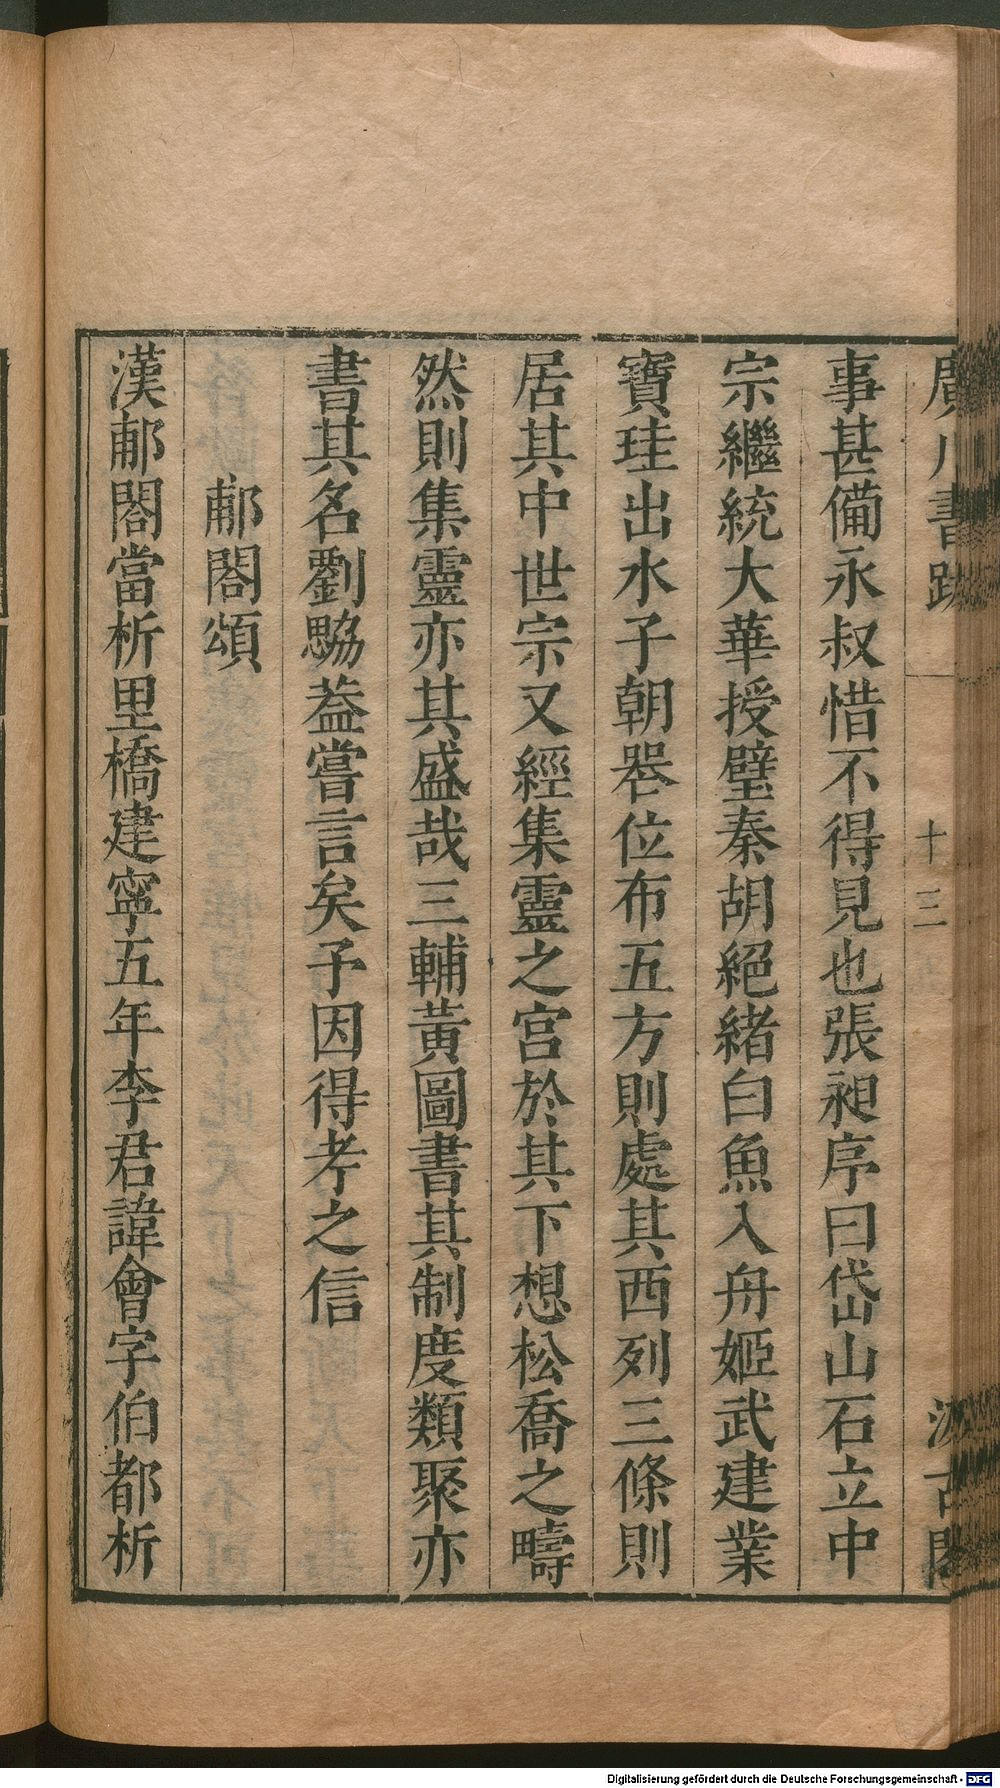 廣川書跋
十三
汲古閣
事甚備永叔惜不得見也張昶序曰岱山石立中
宗繼統大華授璧秦胡絕緒白魚入舟姬武建業
寶珪出水子朝喪位布五方則處其西列三條則
居其中世宗又經集靈之宮於其下想松喬之疇
然則集靈亦其盛哉三輔黃圖書其制度類聚亦
書其名劉勰葢嘗言矣予因得考之信
郙閣頌
漢郙閣當析里橋建寧五年李君諱會字伯都析
Digitalisierung gefördert durch die Deutsche Forschungsgemeinschaft - DFG